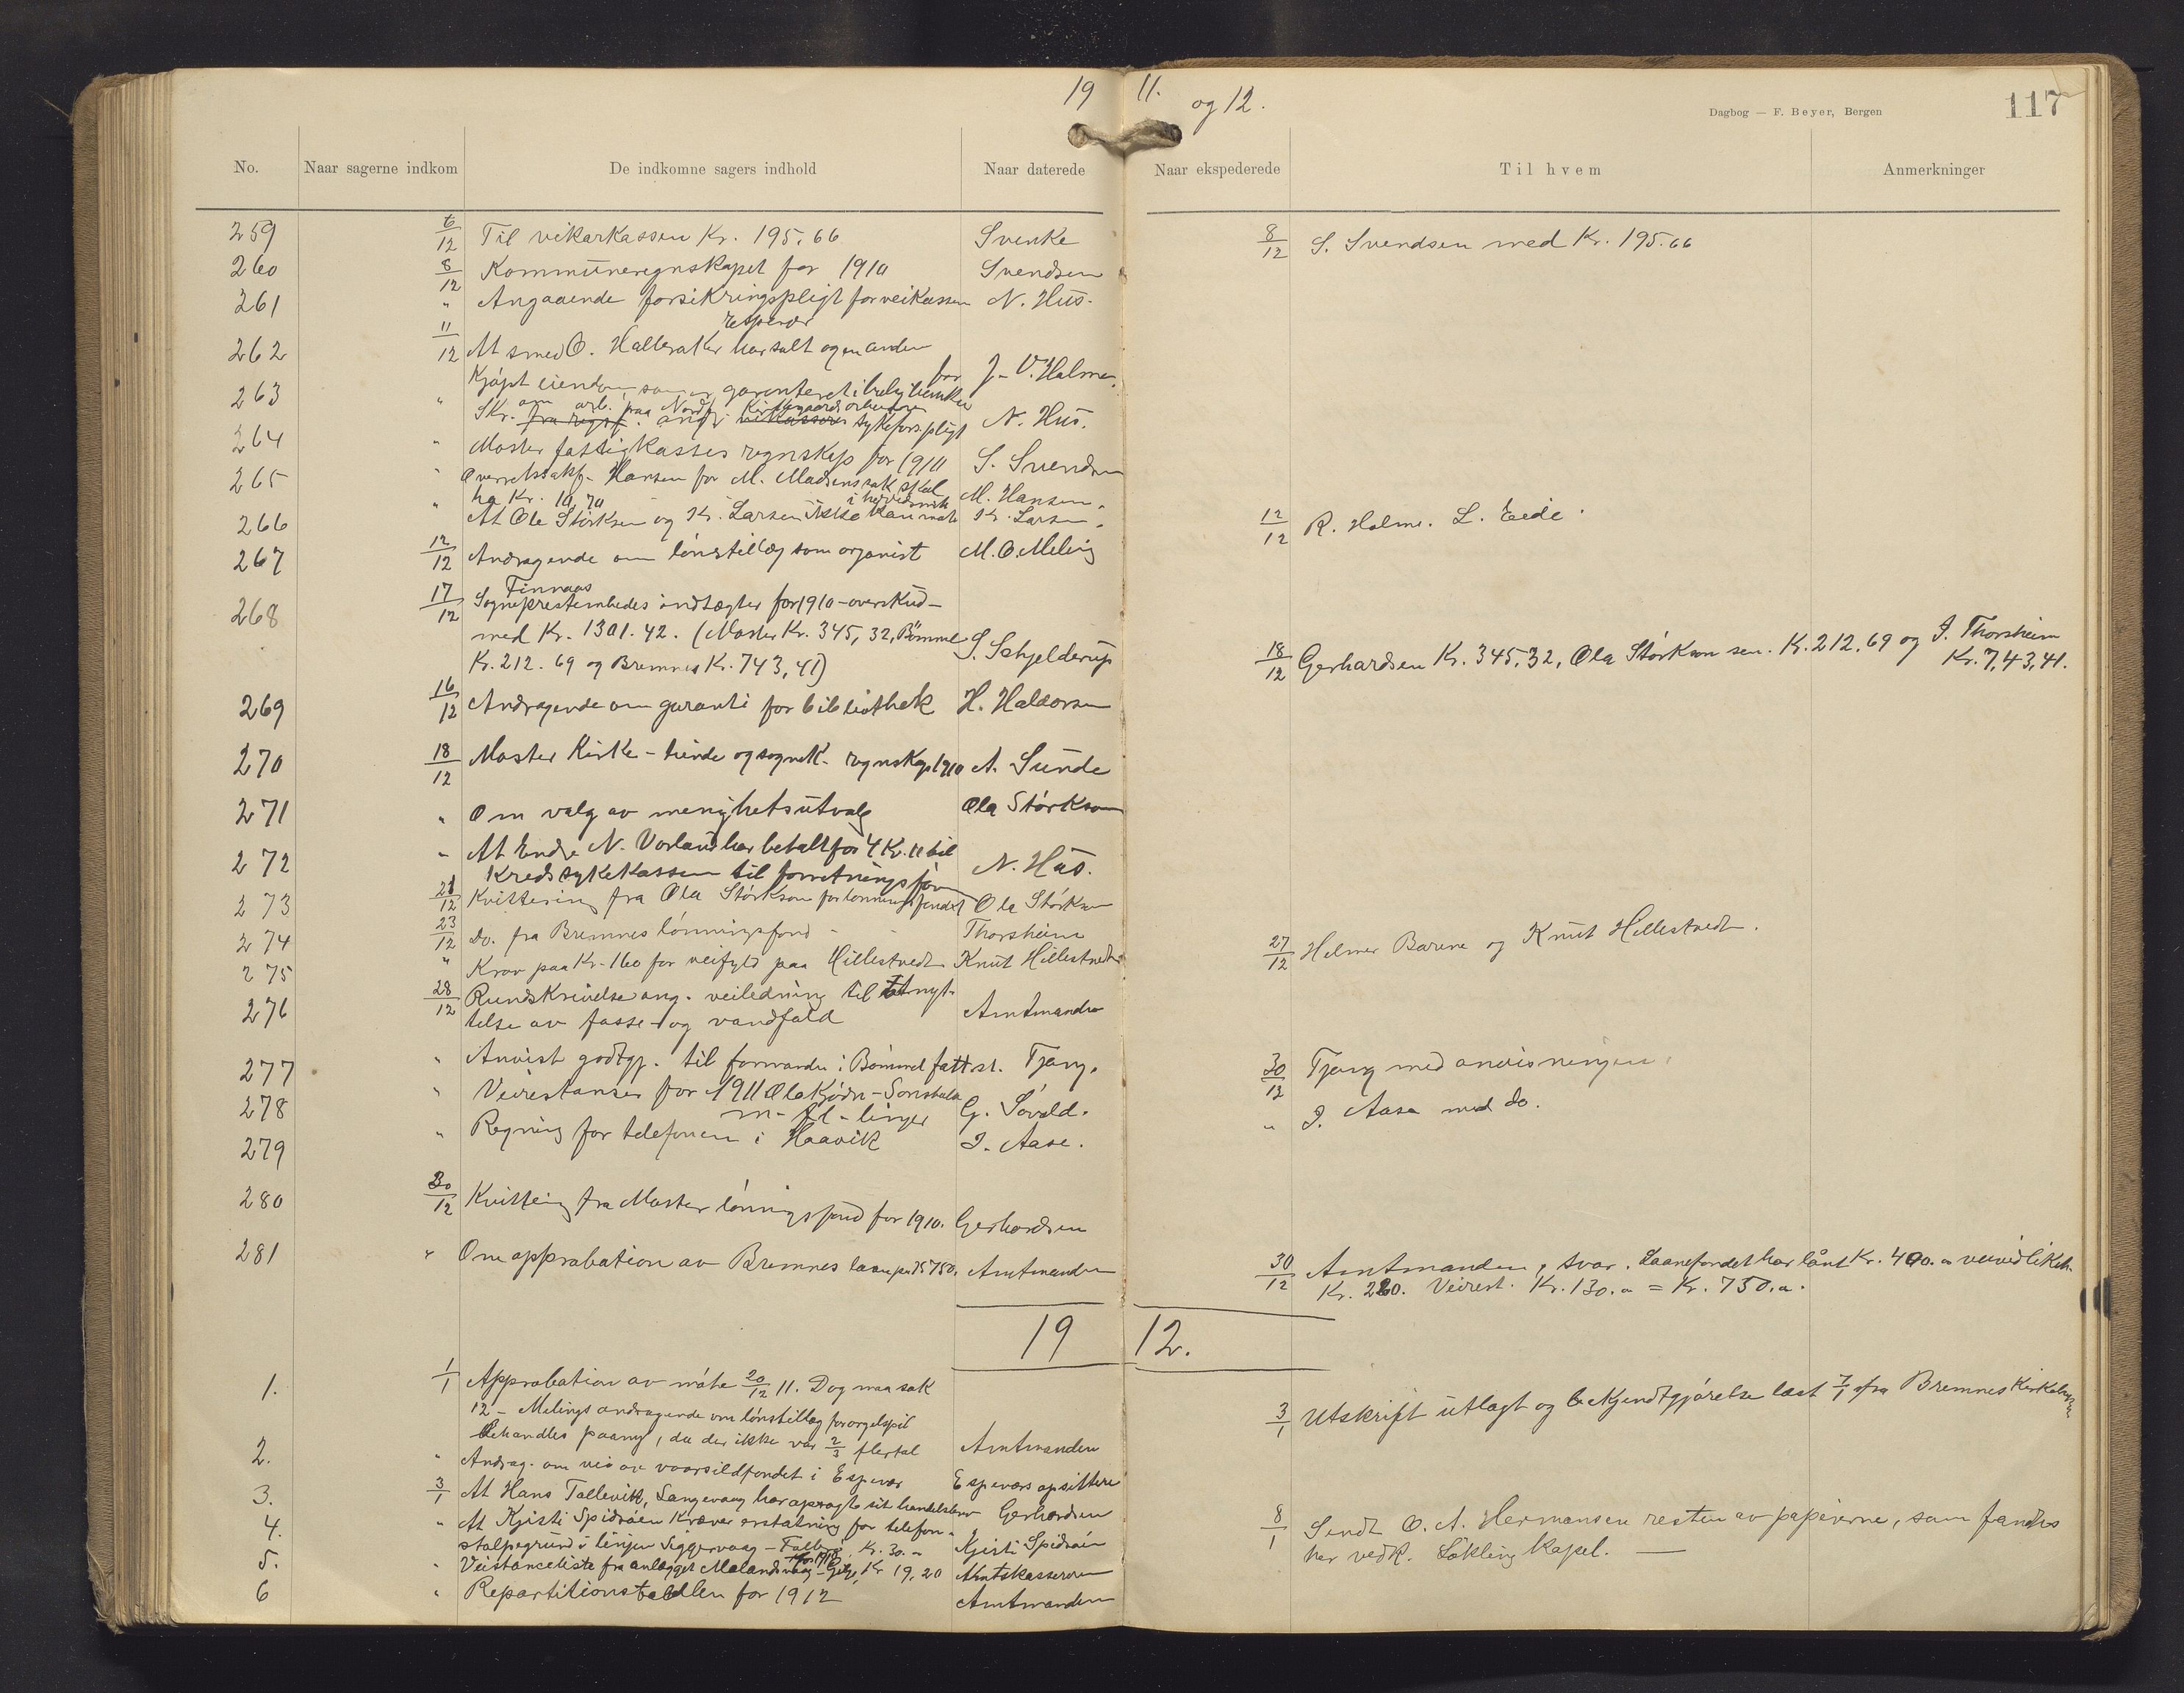 19 11. og 12.
Dagbog — F. Beyer, Bergen
117
No. Naar sagerne indkom De indkomne sagers indhold Naar daterede Naar ekspederede Til hvem Anmerkninger
259 6/12 Til vikarkassen Kr. 195.66 Svenke 8/12 S. Svendsen med Kr. 195.66
260 8/12 Kommuneregnskapet for 1910 Svendsen
261 " Angaaende forsikringspligt for veikassen N. Hus.
Espevær
262 11/12 At smed O. Halleraker har salt og en anden
Kjøpt eiendom, som er garanteret i for J. V. Holme.
om arb. paa Nordr Kirkegaards
263 " Skr. ang. sykefors.pligt N. Hus.
264 " Moster fattigkasses regnskap for 1910 S. Svendsen
265 " Overretssakf. Hansen for M. Madsens sak skal
ha Kr. 10,70 M. Hansen.
266 " At Ole Størksen og Kr. Larsen ikke kan møte i Kr. Larsen. 12/12 R. Holme. L. Eide.
267 12/12 Andragende om lønstillæg som organist M. O. Meling
Finnaas
268 17/12 Sogneprestembedes indtægter for 1910 - overskud -
med Kr. 1301.42. (Moster Kr. 345,32, Bømmel
Kr. 212.69 og Bremnes Kr. 743,41) S. Schjelderup 18/12 Gerhardsen Kr. 345,32, Ola Størkson sen. Kr. 212.69 og J. Thorsheim
Kr. 7,43,41.
269 16/12 Andragende om garanti for bibliothek H. Haldorsen
270 18/12 Moster Kirke - tiende og sognek. regnskap 1910 A. Sunde
271 " Om valg av menighetsutvalg Ola Størkson
272 " At Endre N. Vorland har betalt for 4 Kv. 11 til
Kredssykekassen til forretningsfør N. Hus.
273 21/12 Kvittering fra Ola Størkson for lønningsfondet Ola Størkson
274 23/12 do. fra Bremnes lønningsfond - - Thorsheim
275 " Krav paa Kr. 160 for veifyld paa Hillestvedt Knut Hillestvedt 27/12 Helmer Barene og Knut Hillestvedt.
276 28/12 Rundskrivelse ang. veiledning til utnyt-
telse av fosse- og vandfald Amtmanden
277 " Anvist godtgj. til formanden i Bømmel fatt.st. Tjong. 30/12 Tjong med anvisningen.
278 " Veirestanser for 1911 Ole
m. fl. G. Sovold.
279 " Regning for telefonen i Haavik J. Aase. " J. Aasa med do.
280 30/12 Kvittering fra Moster lønningsfond for 1910. Gerhardsen
281 " Om approbation av Bremnes laan paa 750. Amtmanden 30/12 Amtmanden, svar. Laanefondet har lånt Kr. 400.
Kr. 220. Veirest. Kr. 130. = Kr. 750.
19 12.
1. 1/1 Approbation av møte 20/12 11. Dog maa sak
12 - Melings andragende om lønstillæg for orgelspil
behandles paany, da der ikke var 2/3 flertal Amtmanden 3/1 Utskrift utlagt og bekjendtgjørelse læst 7/1 fra Bremnes Kirkebakke
2. " Andrag. om vei av vaarsildfondet i Espevær Espeværs opsittere
3. 3/1 At Hans Tollevik, Langevaag har opsagt sit handelsbrev Gerhardsen
4. " At Kjisti Spidsøen Kræver erstatning for telefon-
stolpegrund i linjen Siggjervaag - Kr. 30. Kjisti Spidsøen 8/1 Sendt O. A. Hermansen resten av papirerne, som fandtes
her vedk. Løkling Kapel.
5. " Veistanceliste fra anlægget Kr 19,20 Amtskassereren
6 " Repartitionstabellen for 1912 Amtmanden